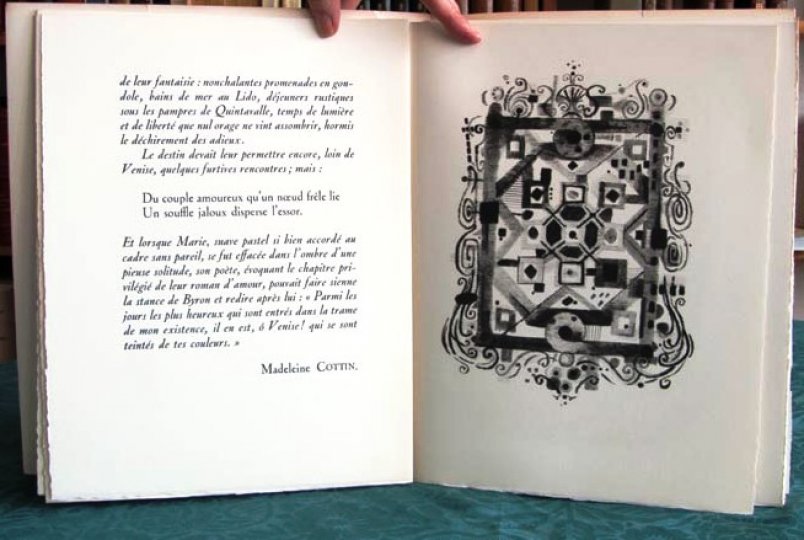 de leur fantaisie : nonchalantes promenades en gon-
dole, bains de mer au Lido, déjeuners rustiques
sous les pampres de Quintavalle, temps de lumière
et de liberté que nul orage ne vint assombrir, hormis
le déchirement des adieux.
Le destin devait leur permettre encore, loin de
Venise, quelques furtives rencontres ; mais :
Du couple amoureux qu'un nœud frêle lie
Un souffle jaloux disperse l'essor.
Et lorsque Marie, suave pastel si bien accordé au
cadre sans pareil, se fut effacée dans l'ombre d'une
pieuse solitude, son poète, évoquant le chapitre pri-
vilégié de leur roman d'amour, pouvait faire sienne
la stance de Byron et redire après lui : « Parmi les
jours les plus heureux qui sont entrés dans la trame
de mon existence, il en est, ô Venise ! qui se sont
teintés de tes couleurs. »
Madeleine COTTIN.